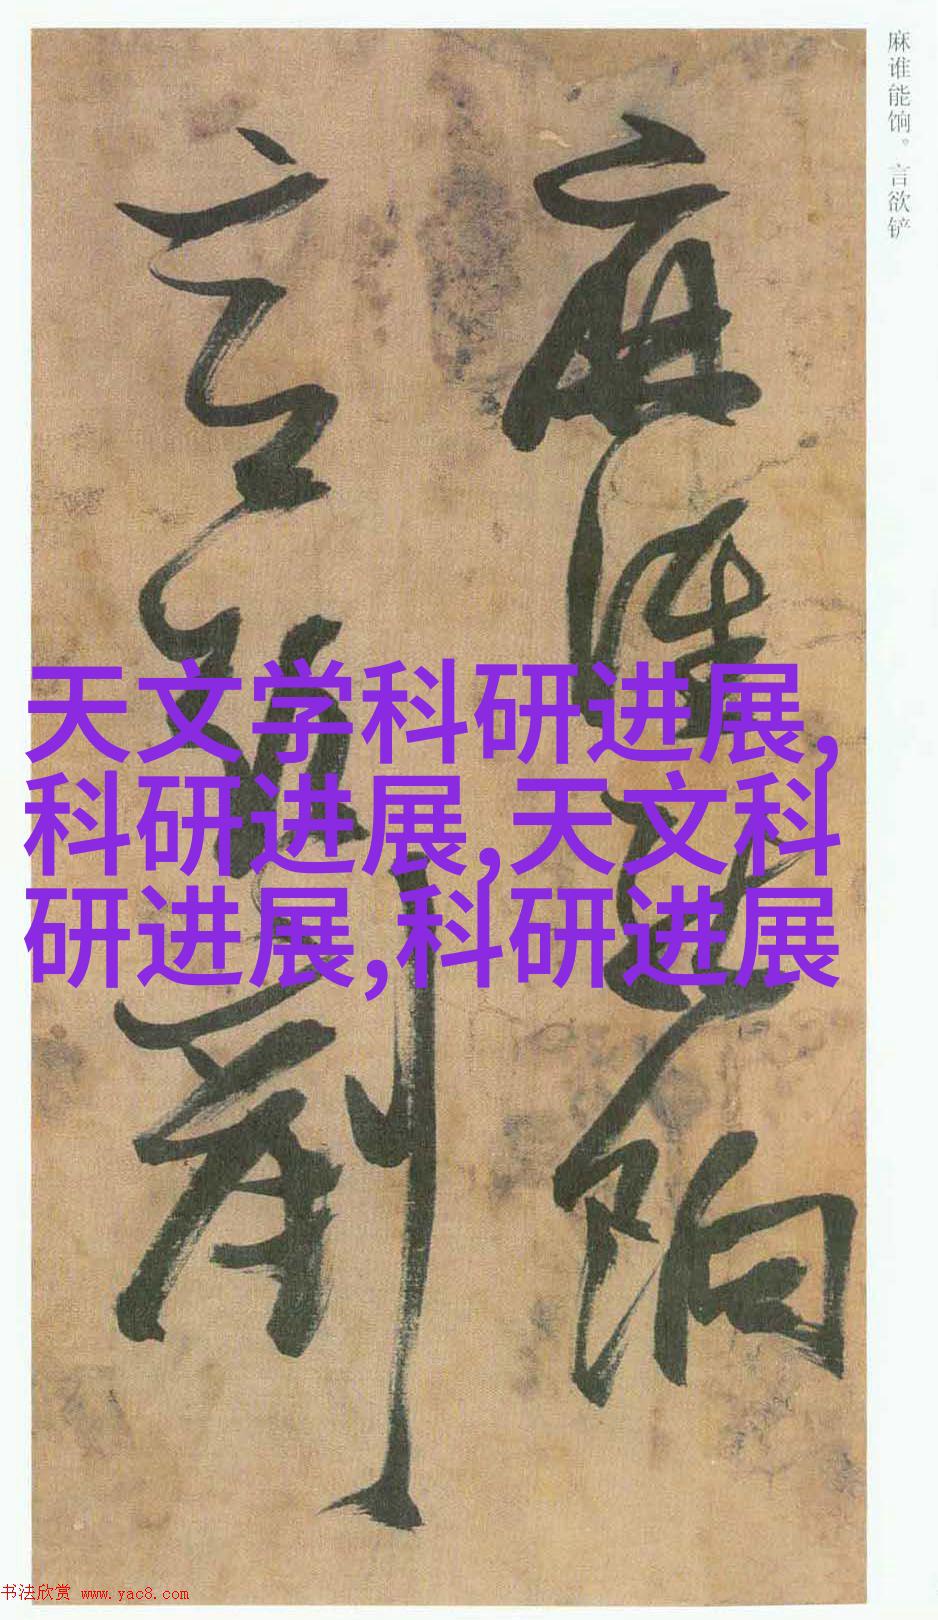 麻谁能饷。言欲铲
麻谁能饷
言欲铲
天文学科研进展,
科研进展,天文科
研进展,科研进展
书法欣赏 www.yac8.com